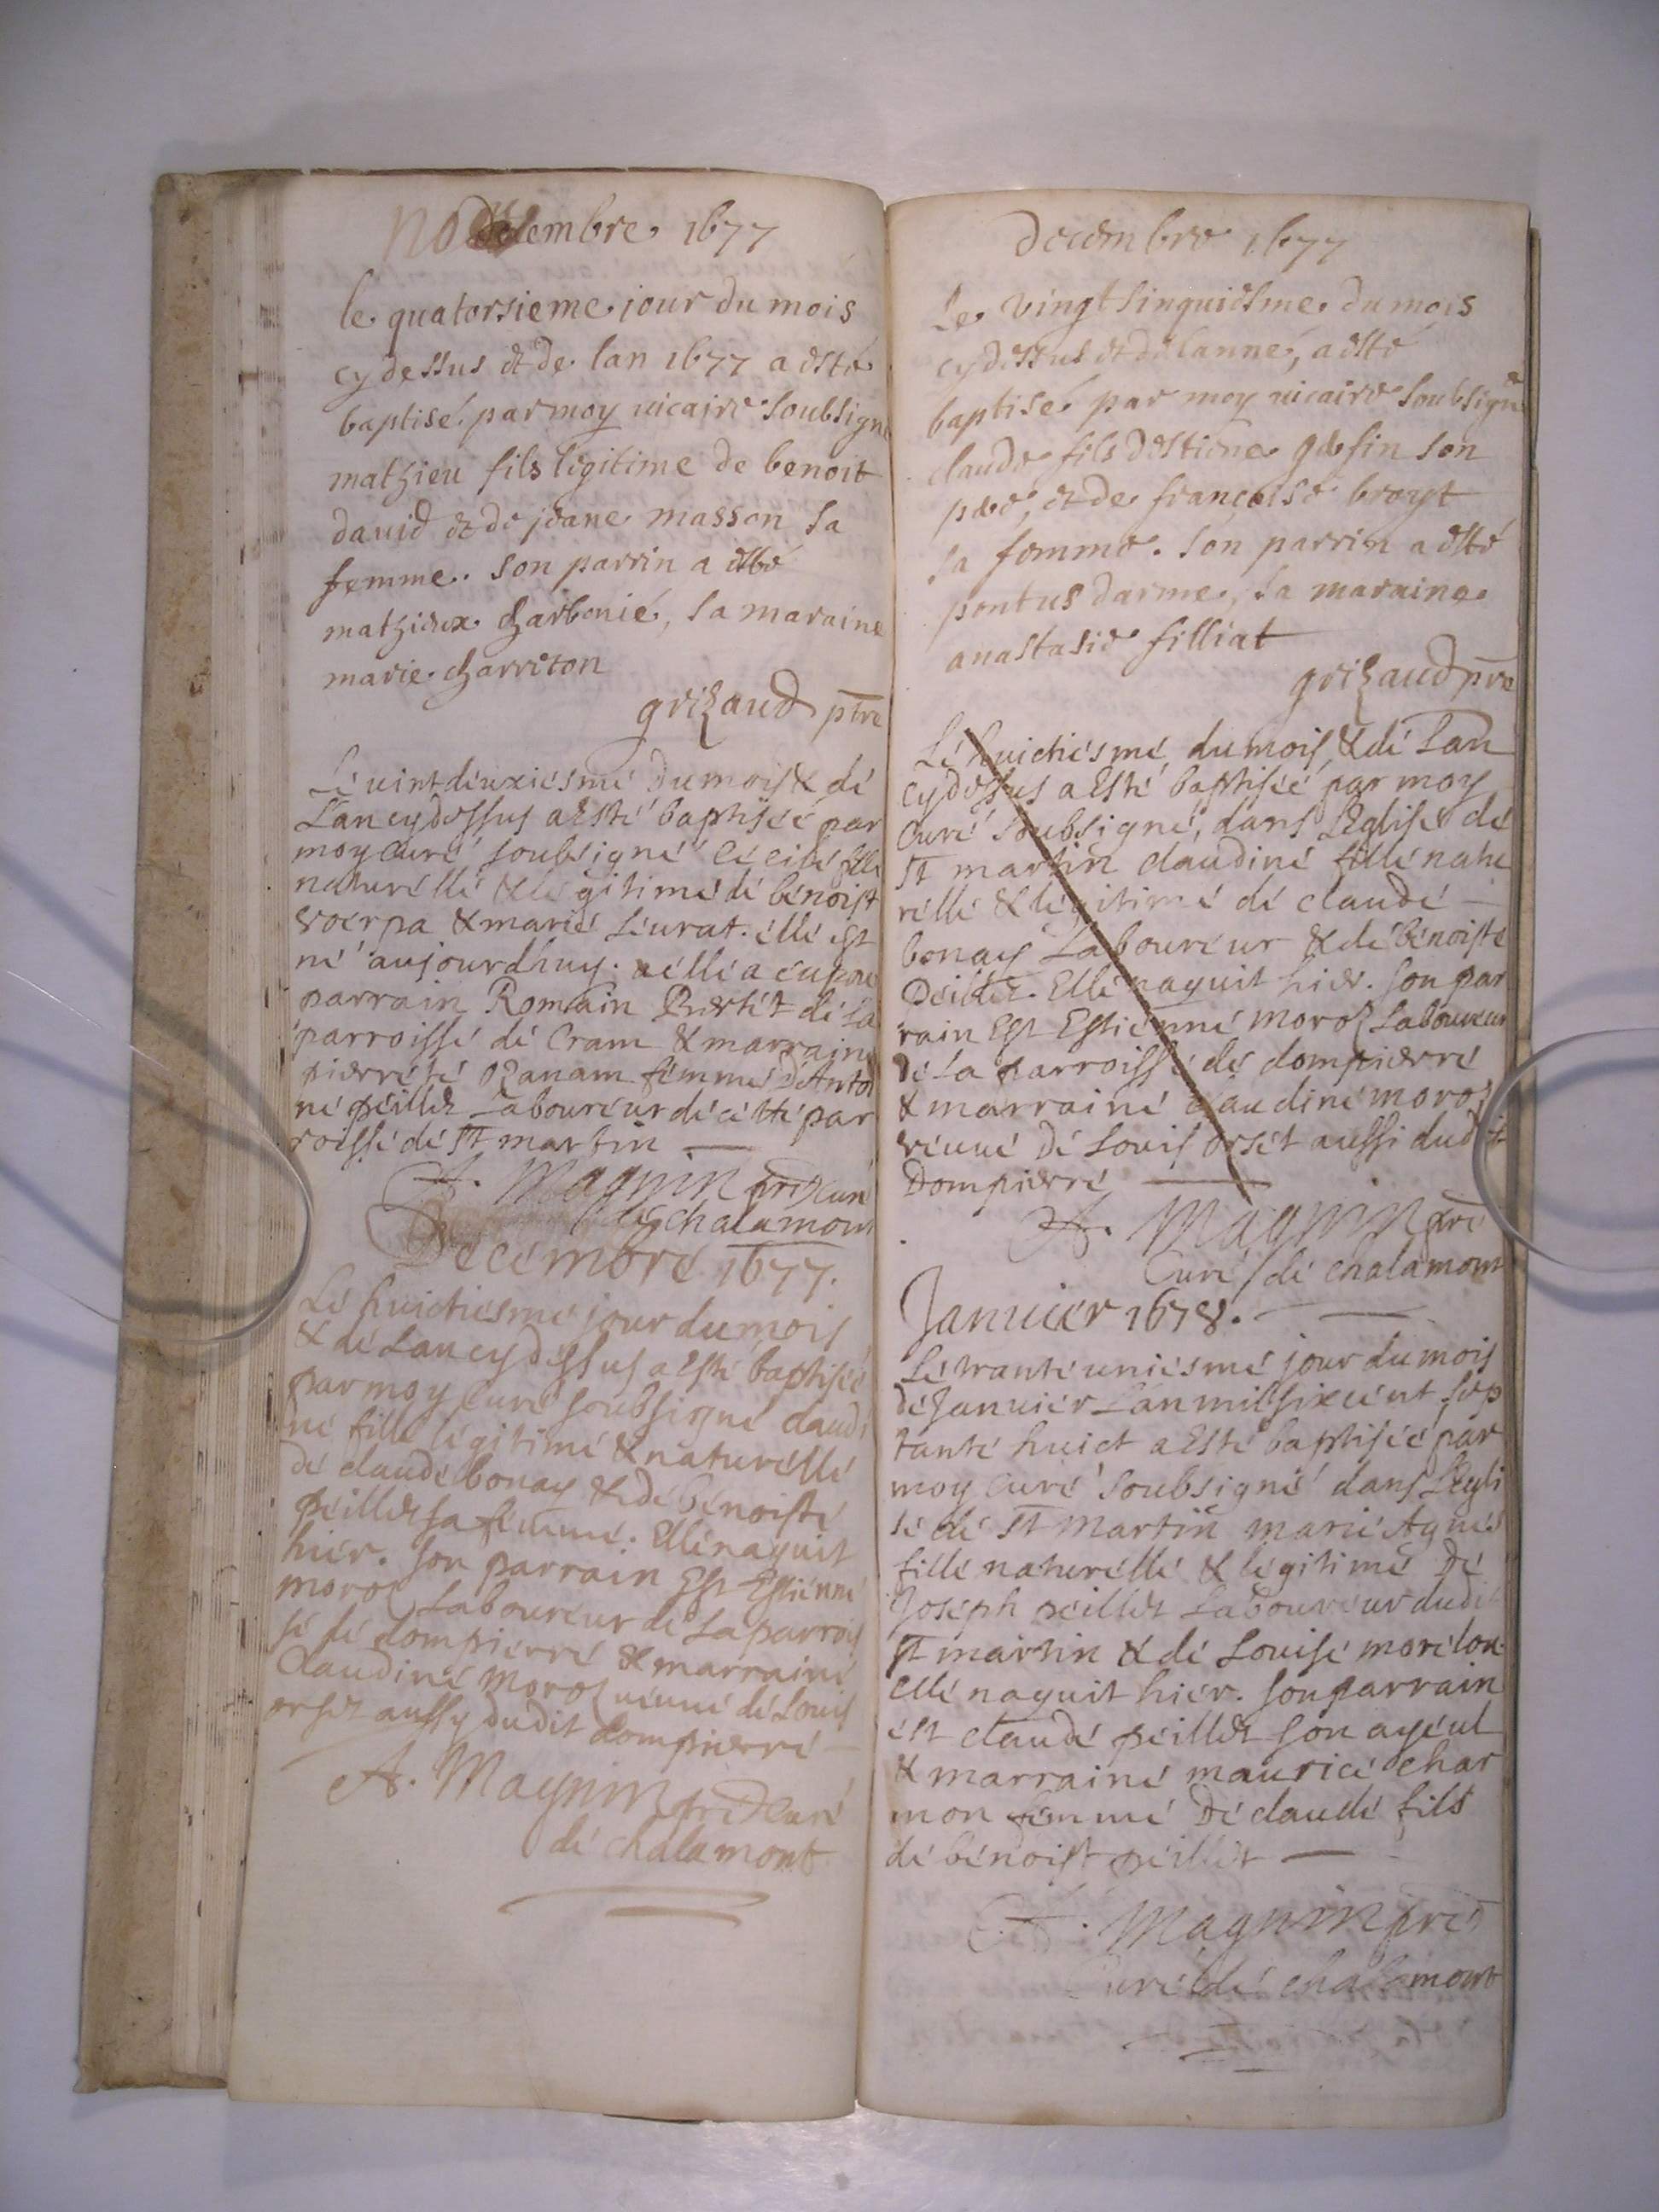 novembre 1677
le quatorsieme jour du mois
cy dessus et de lan 1677 a esté
baptisé par moy vicaire soubsigné
mathieu fils legitime de benoit
david et de jeane masson sa
femme. son parrin a esté
mathieux charbonié, sa maraine
marie charreton
grizaud ptre
Le vint deuxiesme du mois & de
Lan cydessus a Esté baptisée par
moy curé soubsigné fille
naturelle & legitime de benoist
& marie Leurat. elle est
né aujourdhuy. & elle a eu pour
parrain Romain de La
parroisse de Cram & marraine
pierre ozanam femme d'Antoi
ne peillet Laboureur de cette par
roisse de St martin
A. Magnin pre & curé
de chalamont
Decembre 1677.
Le huictiesme jour du mois
& de Lan cy dessus a Esté baptisée
par moy curé soubsigné claudi
ne fille legitime & naturelle
de claude bonay & de benoiste
peillet sa femme. Elle naquit
hier. son parrain Est Estienne
moroz Laboureur de La parrois
se de dompierre & marraine
Claudine moroz veuve de Louis
orset aussy dudit dompierre
A. Magnin pre & curé
de chalamont
decembre 1677
Le vingt sinquiesme du mois
cy dessus et de lanné, a esté
baptisé par moy vicaire soubsigné
claude fils destiene gosin son
pere, et de françoise broyt
sa femme. son parrin a esté
pontus darme, sa maraine
anastasie filliat
grizaud pre
Le huictiesme du mois & de Lan
cydessus a Esté baptisée par moy
curé soubsigné, dans L'Eglise de
St martin claudine fille natu
relle & legitime de claude
bonay Laboureur & de benoiste
Peillet. Elle naquit hier. son par
rain Est Estienne moroz Laboureur
de La parroisse de dompierre
& marraine claudine moroz
veuve de Louis orset aussi dudit
Dompierre
A. Magnin pre
Curé de chalamont
Janvier 1678.
Le trante uniesme jour du mois
de Janvier Lan mil six cent sep
tante huict a Esté baptisée par
moy curé soubsigné dans L'Egli
se de St Martin marie Agnes
fille naturelle & legitime De
Joseph peillet Laboureur dudit
St martin & de Louise morelon
elle naquit hier. son parrain
est claude peillet son ayeul
& marraine maurice char
mon femme De claude fils
de benoist peillet
A. Magnin pre
curé de chalamont